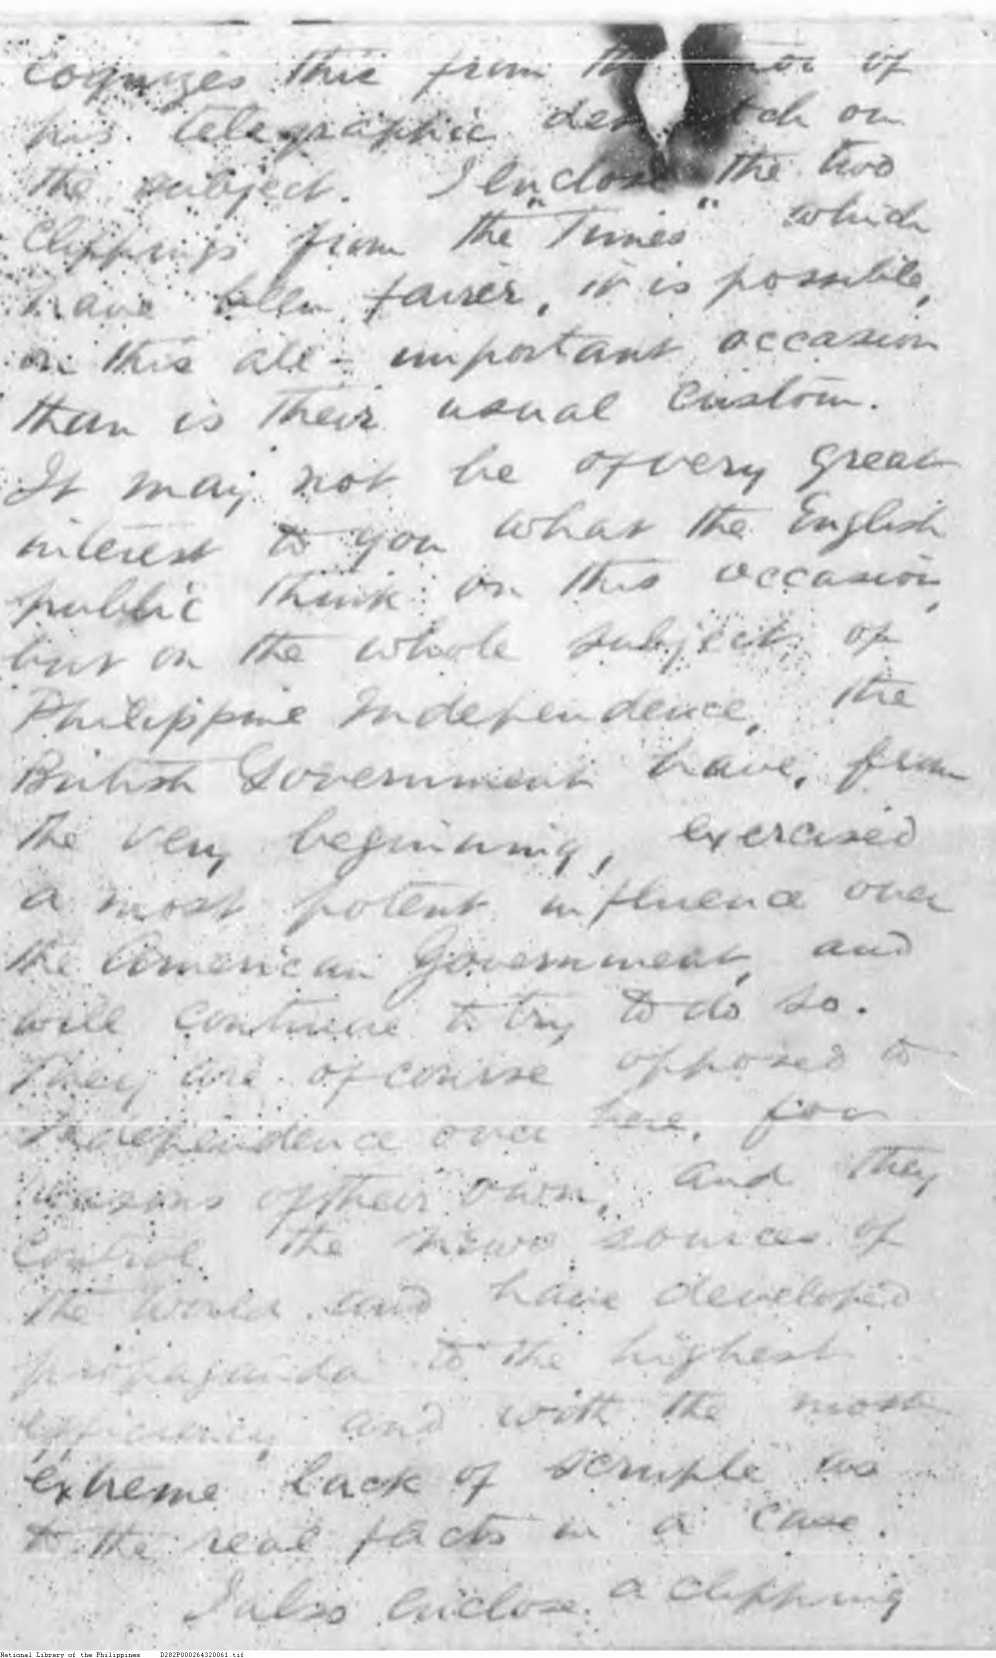 cognizes this from the tenor of
his telegraphic despatch on
the subject. I enclose the two
clippings from the "Times" which
have been fairer, it is possible,
on this all-important occasion
than is their usual custom.
It may not be of very great
interest to you what the English
public think on this occasion,
but on the whole subject of
Philippine Independence, the
British Government have, from
the very beginning, exercised
a most potent influence over
the American Government, and
will continue to try to do so.
They are of course opposed to
Independence over here, for
reasons of their own, and they
control the news sources of
the World and have developed
propaganda to the highest
efficiency and with the most
extreme lack of scruple as
to the real facts in a case.
I also enclose a clipping
National Library of the Philippines D282P000264320061.tif